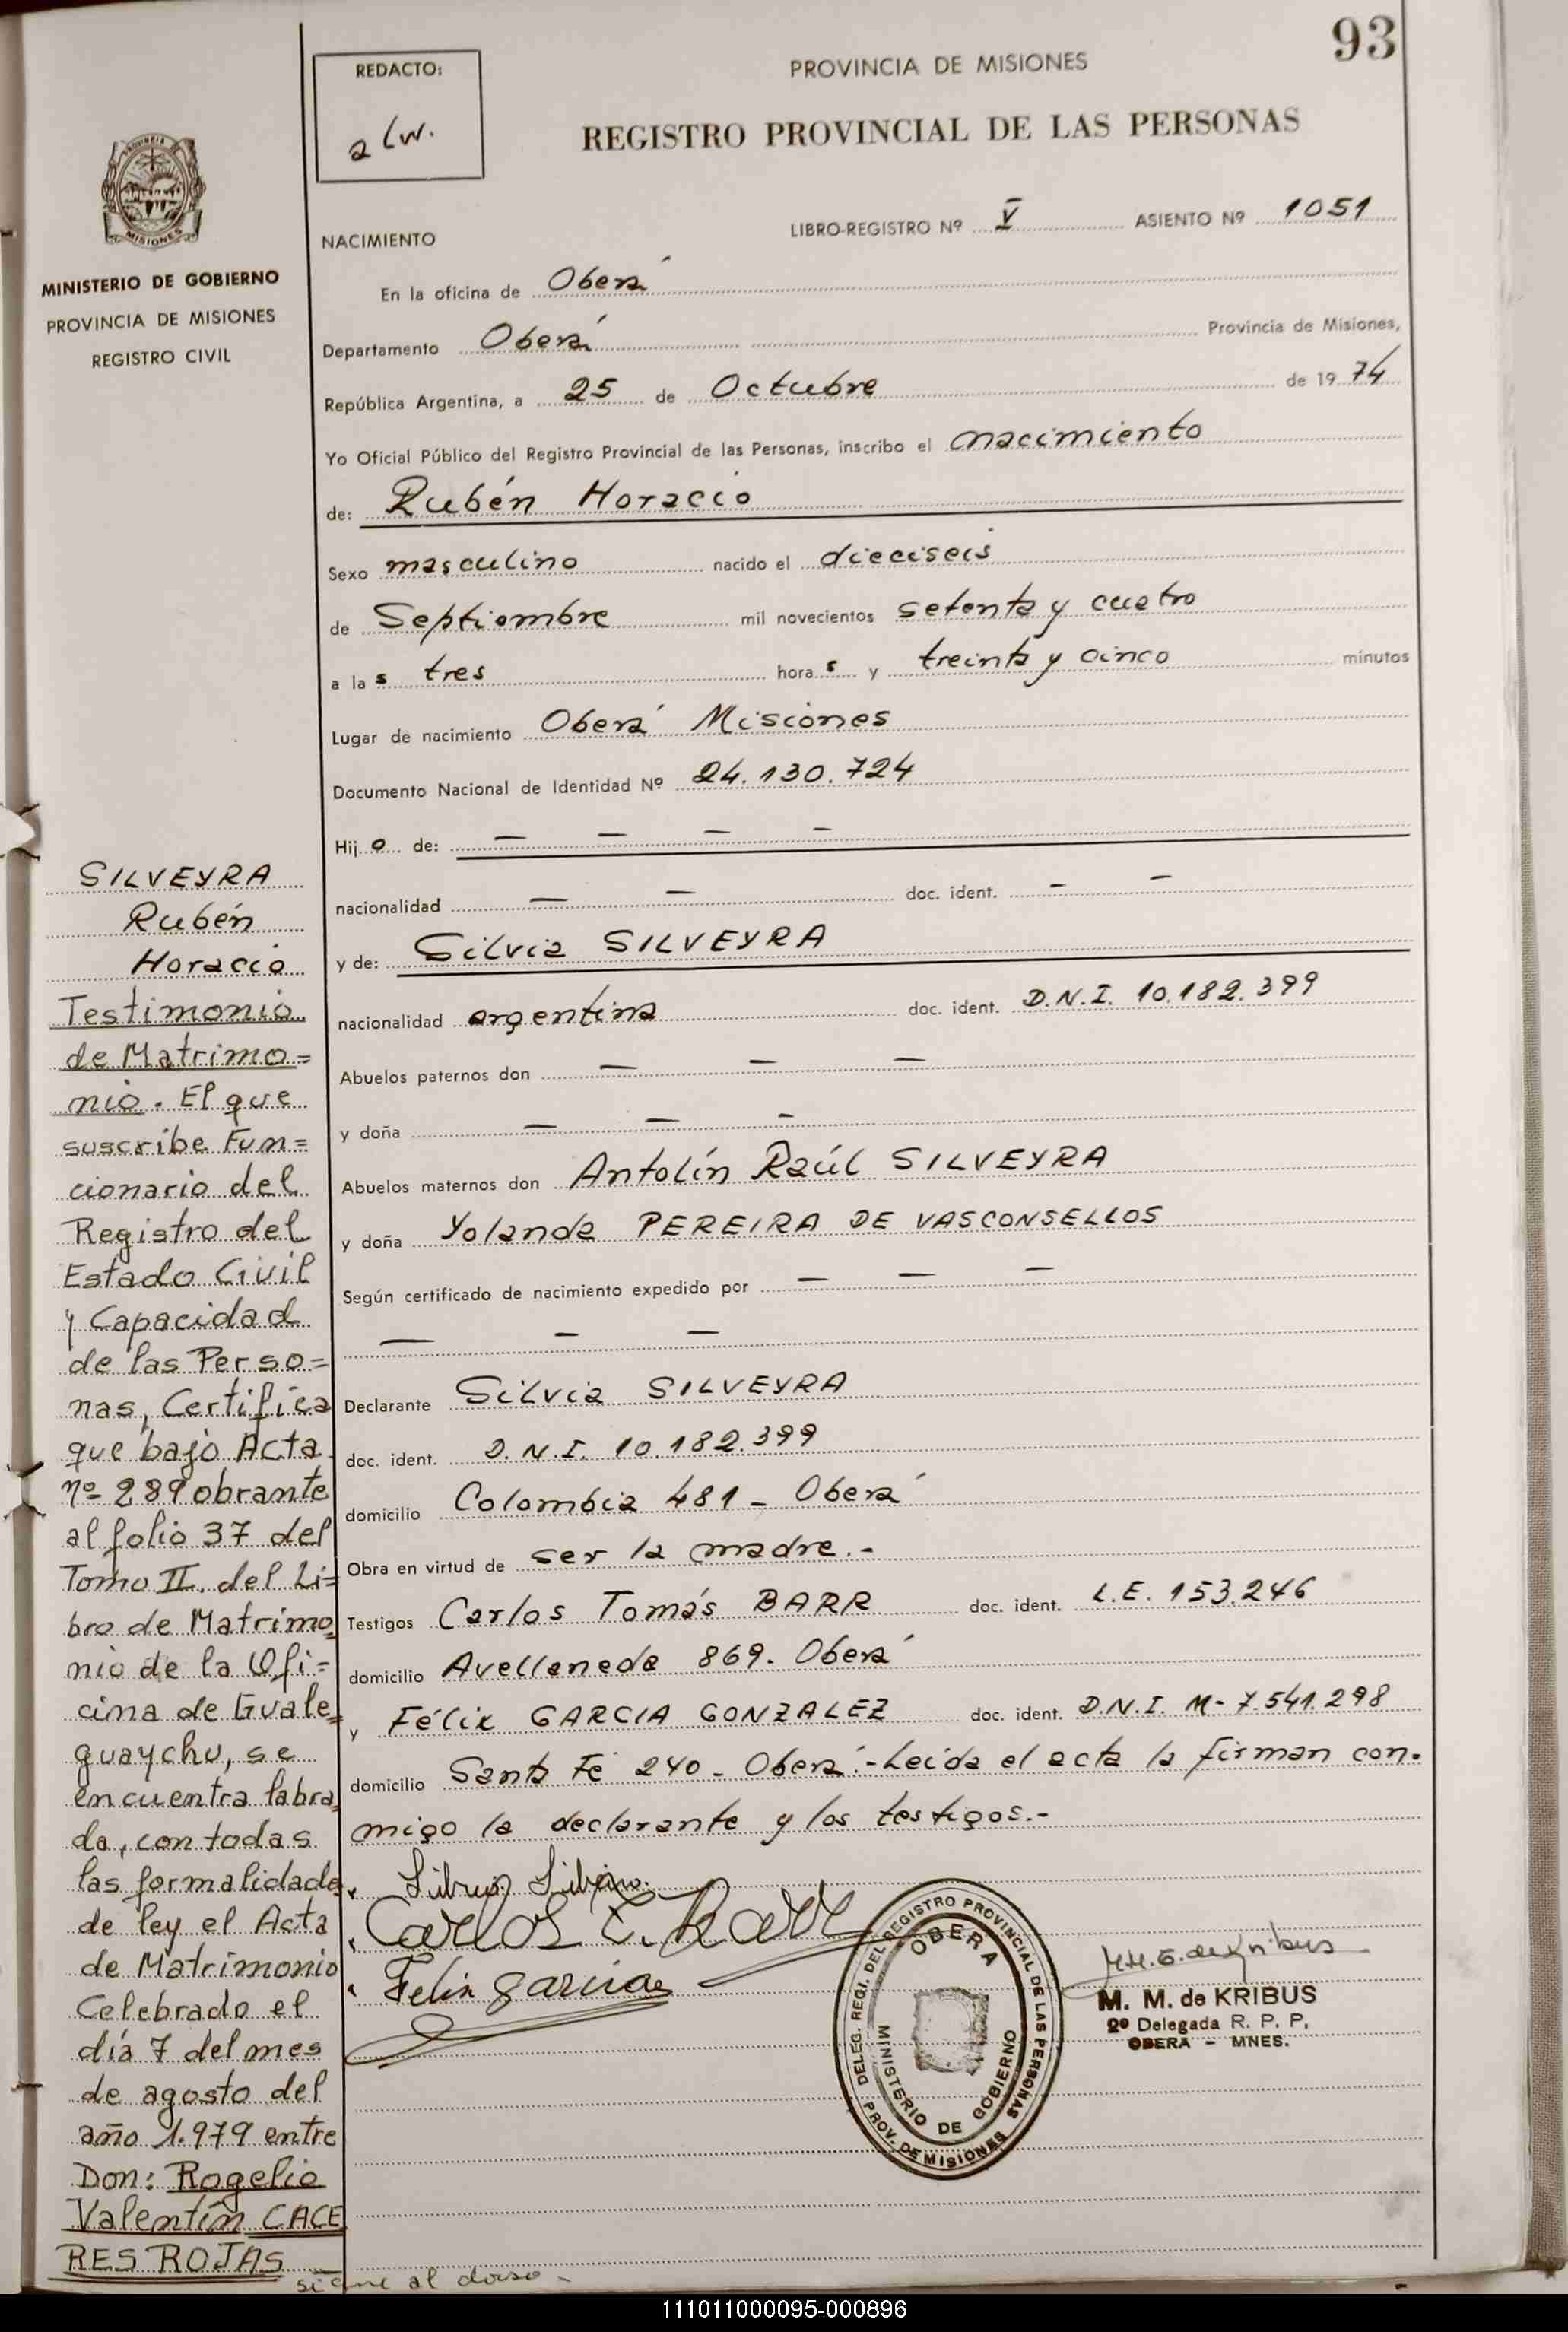 93
REDACTO:
PROVINCIA DE MISIONES
REGISTRO PROVINCIAL DE LAS PERSONAS
MISIONES
MINISTERIO DE GOBIERNO
PROVINCIA DE MISIONES
REGISTRO CIVIL
LIBRO-REGISTRO Nº V ASIENTO Nº 1051
NACIMIENTO
En la oficina de Oberá
Departamento Oberá Provincia de Misiones,
República Argentina, a 25 de Octubre de 1974
Yo Oficial Público del Registro Provincial de las Personas, inscribo el nacimiento
de: Rubén Horacio
Sexo masculino nacido el dieciseis
de Septiembre mil novecientos setenta y cuatro
a las tres horas y treinta y cinco minutos
Lugar de nacimiento Oberá Misiones
Documento Nacional de Identidad Nº 24.130.724
Hijo de: — — — —
nacionalidad — — doc. ident. - -
y de: Silvia SILVEYRA
nacionalidad argentina doc. ident. D.N.I. 10.182.399
Abuelos paternos don — — —
y doña — — -
Abuelos maternos don Antolín Raúl SILVEYRA
y doña Yolanda PEREIRA DE VASCONSELLOS
Según certificado de nacimiento expedido por — — —
— — —
Declarante Silvia SILVEYRA
doc. ident. D.N.I. 10.182.399
domicilio Colombia 481 - Oberá
Obra en virtud de ser la madre.-
Testigos Carlos Tomás BARR doc. ident. L.E. 153.246
domicilio Avellaneda 869. Oberá
y Félix GARCIA GONZALEZ doc. ident. D.N.I. M- 7.541.298
domicilio Santa Fé 240 - Oberá.- Leída el acta la firman con-
migo la declarante y los testigos.-
Carlos T. Barr
Felix Garcia
SILVEYRA
Rubén
Horacio
Testimonio
de Matrimo=
nio. El que
suscribe Fun=
cionario del
Registro del
Estado Civil
y Capacidad
de las Perso=
nas, Certifica
que bajo Acta
nº 289 obrante
al folio 37 del
Tomo II. del Li=
bro de Matrimo=
nio de la Ofi=
cina de Guale=
guaychu, se
encuentra labra=
da, con todas
las formalidades
de ley el Acta
de Matrimonio
Celebrado el
día 7 del mes
de agosto del
año 1.979 entre
Don: Rogelio
Valentín CACE
RES ROJAS
sigue al dorso -
DELEG. REGI. DEL REGISTRO PROVINCIAL DE LAS PERSONAS
OBERA
MINISTERIO DE GOBIERNO
PROV. DE MISIONES
M. M. de KRIBUS
2º Delegada R. P. P.
OBERA - MNES.
111011000095-000896